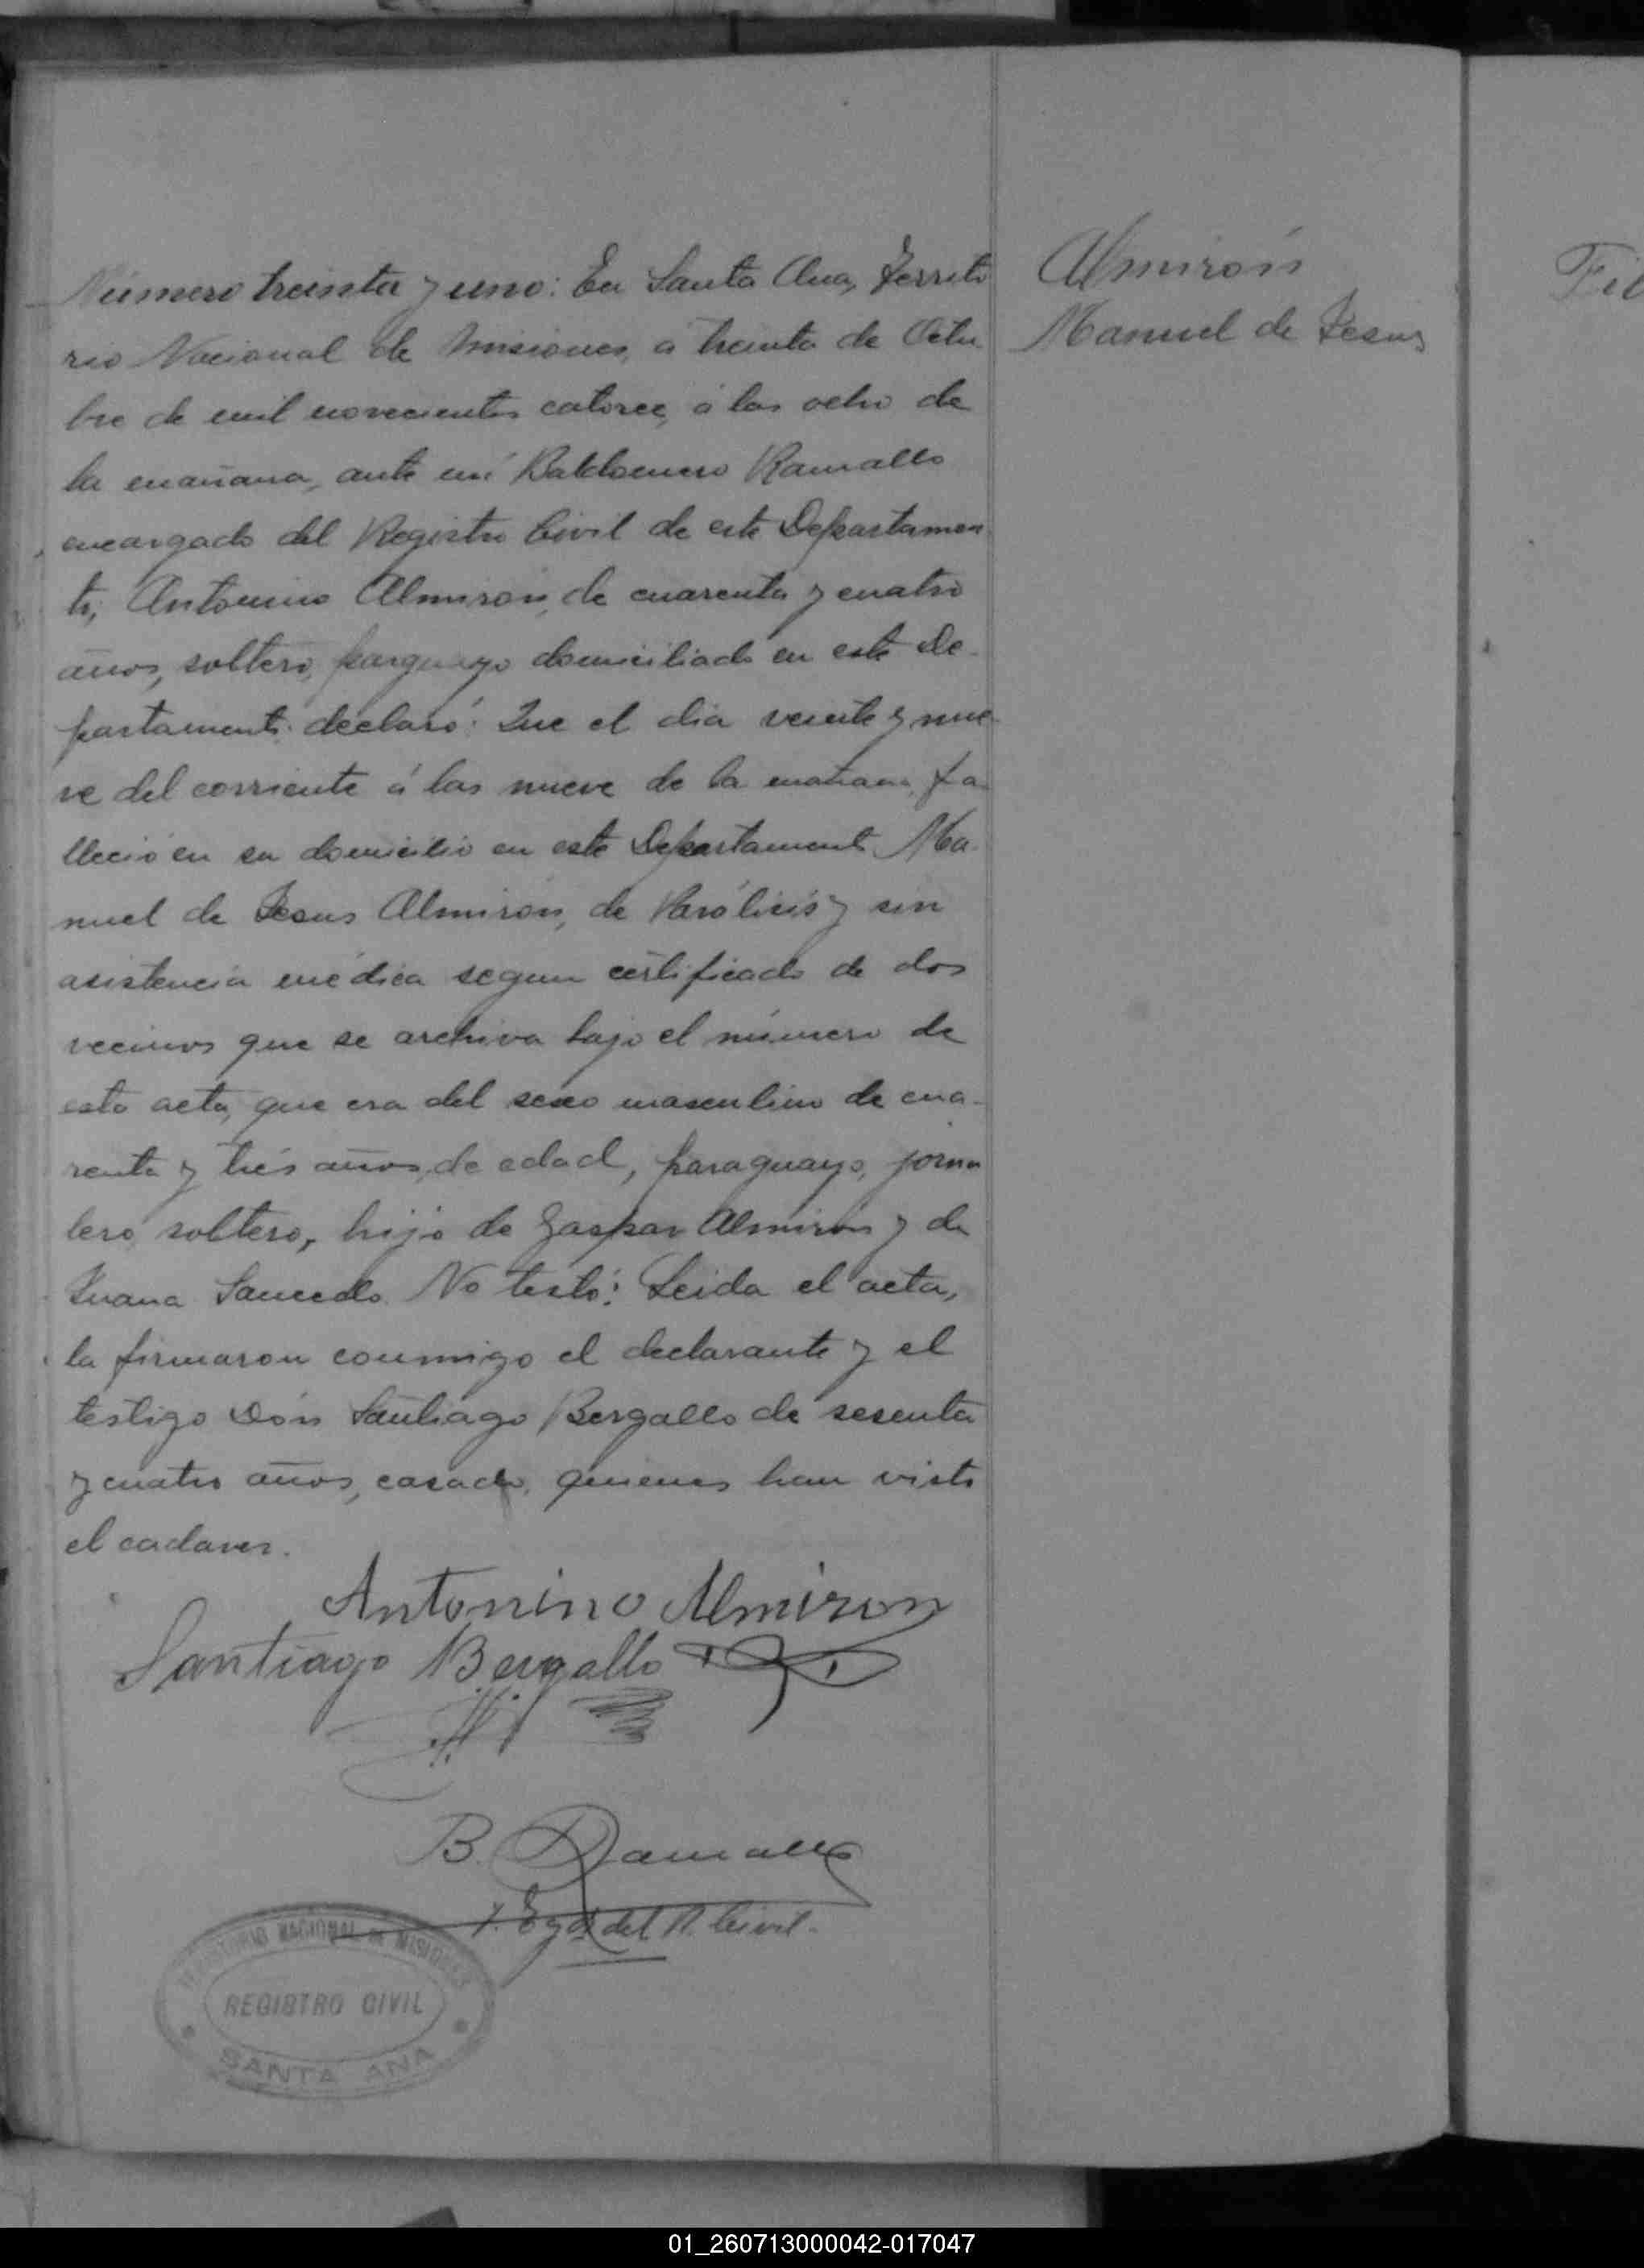 Número treinta y uno: En Santa Ana, Territo
rio Nacional de Misiones, a treinta de Octu
bre de mil novecientos catorce, á las ocho de
la mañana, ante mí Baldomero Ramallo
encargado del Registro Civil de este Departamen
to, Antonino Almirón, de cuarenta y cuatro
años, soltero, parguayo domiciliado en este De-
partamento declaró: Que el dia veinte y nue-
ve del corriente á las nueve de la mañana, fa-
lleció en su domicilio en este Departamento Ma-
nuel de Jesus Almirón, de Parálisis y sin
asistencia médica segun certificado de dos
vecinos que se archiva bajo el número de
esta acta, que era del sexo masculino de cua-
renta y trés años de edad, paraguayo, jorna
lero, soltero, hijo de Gaspar Almirón y de
Juana Saucedo. No testó: Leida el acta,
la firmaron conmigo el declarante y el
testigo Dón Santiago Bergallo de sesenta
y cuatro años, casado, quienes han visto
el cadaver.
Antonino Almiron
Santiago Bergallo
B. Ramallo
Egdo del R. Civil.
TERRITORIO NACIONAL DE MISIONES
REGISTRO CIVIL
SANTA ANA
Almirón
Manuel de Jesus
01_260713000042-017047